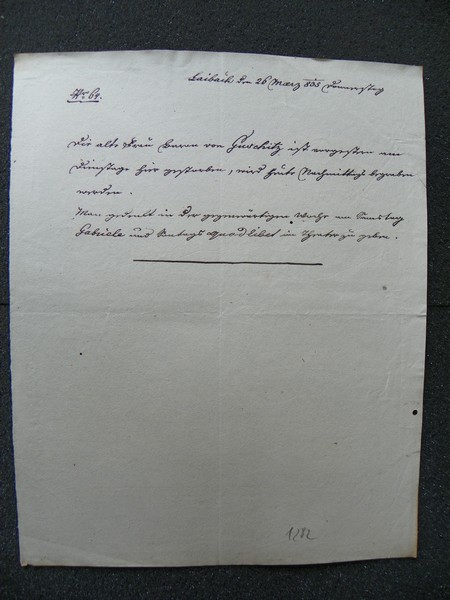 Laibach den 26 März 835 Donnerstag
No 64.
Die alte Frau Baron von ist vorgestern am
Dienstage hier gestorben, wird heute Nachmittags begraben
werden.
Man gedenkt in der gegenwärtigen Woche am Samstag
Gabriele und Sontags quodlibet in Theater zu geben.
1282